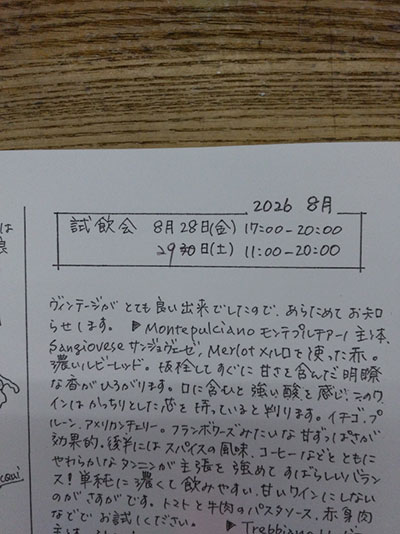 は
良
2026 8月
試飲会 8月28日(金) 17:00-20:00
29日(土) 11:00-20:00
ヴィンテージが とても良い出来でしたので、あらためて お知
らせします。 ▶Montepulciano モンテプルチアーノ 主体、
Sangiovese サンジョヴェーゼ, Merlot メルロを使った赤。
濃いルビーレッド。抜栓してすぐに甘さを含んだ明瞭
な香がひろがります。口に含むと強い酸を感じ、このワ
インはがっちりとした芯を持っていると判ります。イチゴ、プ
ルーン、アメリカンチェリー。フランボワーズみたいな甘ずっぱさが
効果的。後半にはスパイスの風味、コーヒーなどとともに
やわらかなタンニンが主張を強めてすばらしいバラン
ス！単純に濃くて飲みやすい、甘いワインにしない
のがさすがです。トマトと牛肉のパスタソース、赤身肉
などでお試しください。 ▶Trebbiano
主